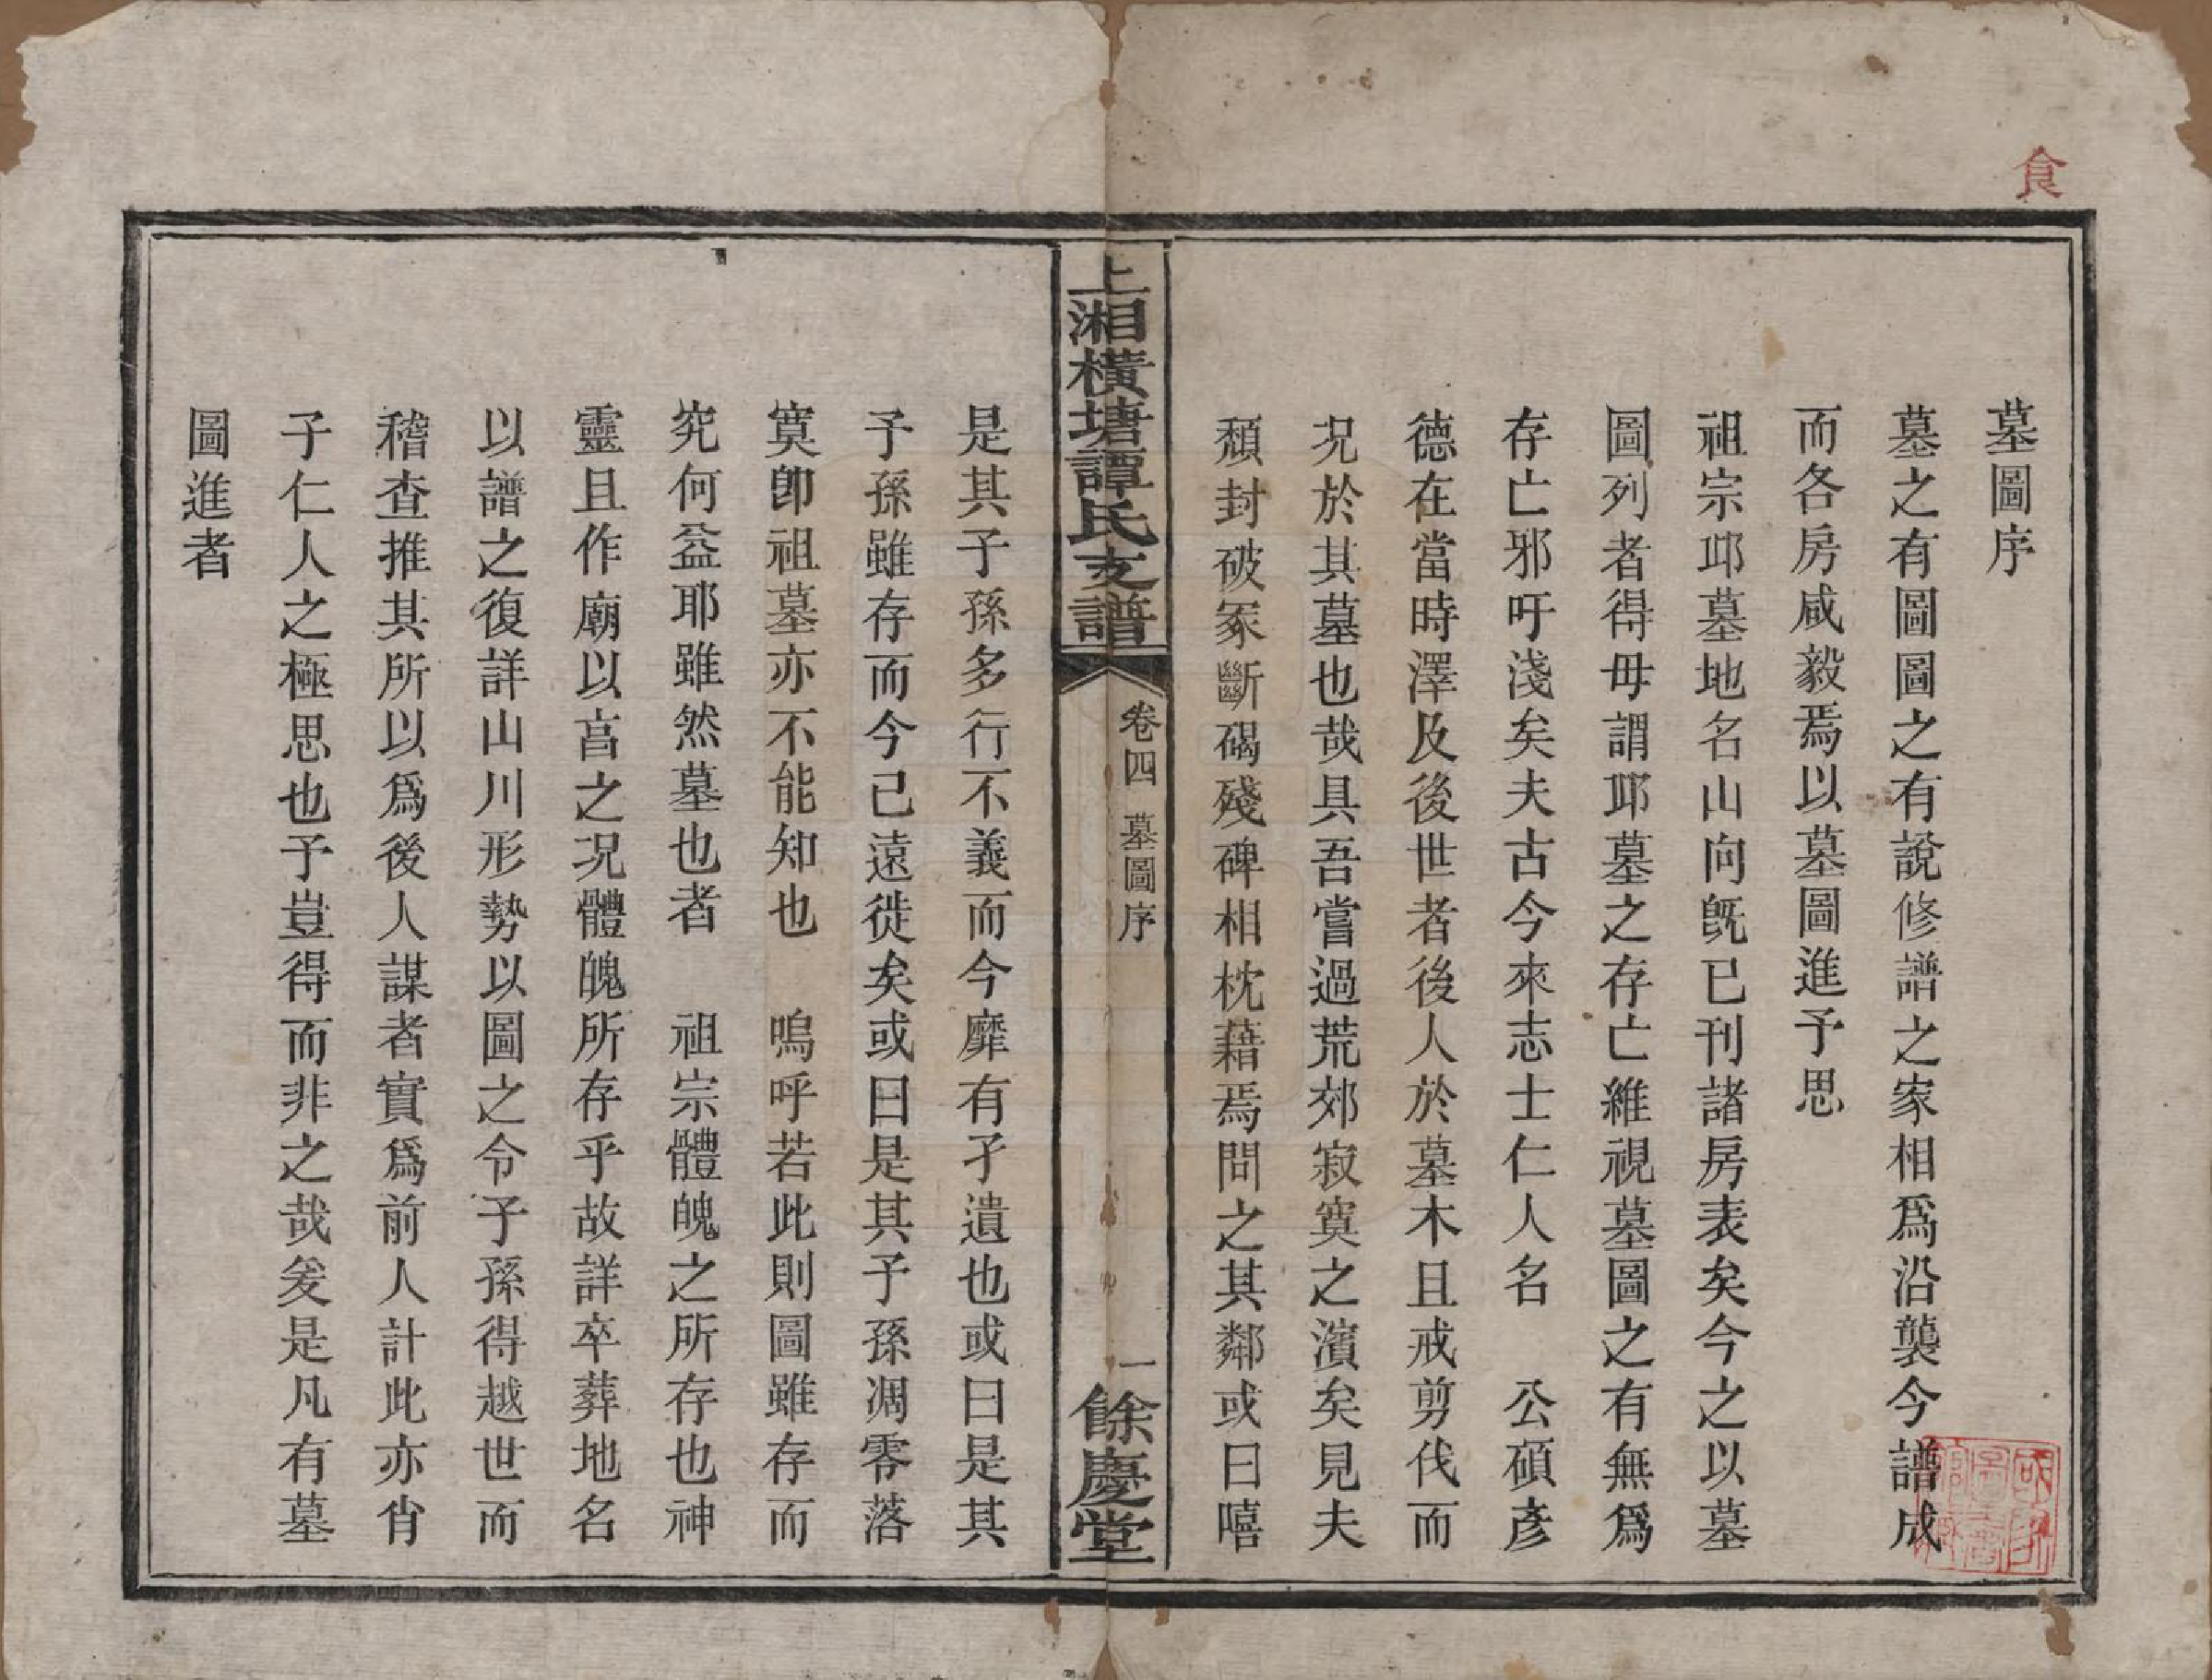 食
墓圖序
墓之有圖圖之有說修譜之家相爲沿襲今譜成
而各房咸毅焉以墓圖進予思
祖宗邱墓地名山向旣已刊諸房表矣今之以墓
圖列者得毋謂邱墓之存亡維視墓圖之有無爲
存亡邪吁淺矣夫古今來志士仁人名　公碩彥
德在當時澤及後世者後人於墓木且戒剪伐而
况於其墓也哉具吾嘗過荒郊寂寞之濱矣見夫
頹封破冢斷碣殘碑相枕藉焉問之其鄰或曰嘻
上湘橫塘譚氏支譜
卷四　墓圖序
一
餘慶堂
是其子孫多行不義而今靡有孑遺也或曰是其
子孫雖存而今已遠徙矣或曰是其子孫凋零落
寞卽祖墓亦不能知也　嗚呼若此則圖雖存而
究何益耶雖然墓也者　祖宗體魄之所存也神
靈且作廟以亯之况體魄所存乎故詳卒葬地名
以譜之復詳山川形勢以圖之令子孫得越世而
稽查推其所以爲後人謀者實爲前人計此亦肖
子仁人之極思也予豈得而非之哉爰是凡有墓
圖進者